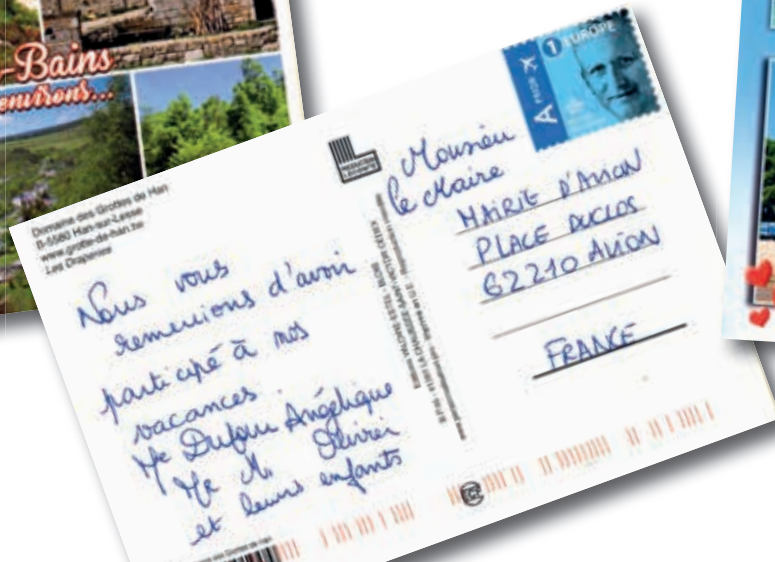 -Bains
environs...
Domaine des Grottes de Han
B-5580 Han-sur-Lesse
www.grotte-de-han.be
Les Draperies
Nous vous
remercions d'avoir
participé à nos
vacances
Me Dufour Angélique
et leurs enfants
A PRIOR
1 EUROPE
Monsieur
le Maire
MAIRIE D'AVION
PLACE DUCLOS
62210 AVION
FRANCE